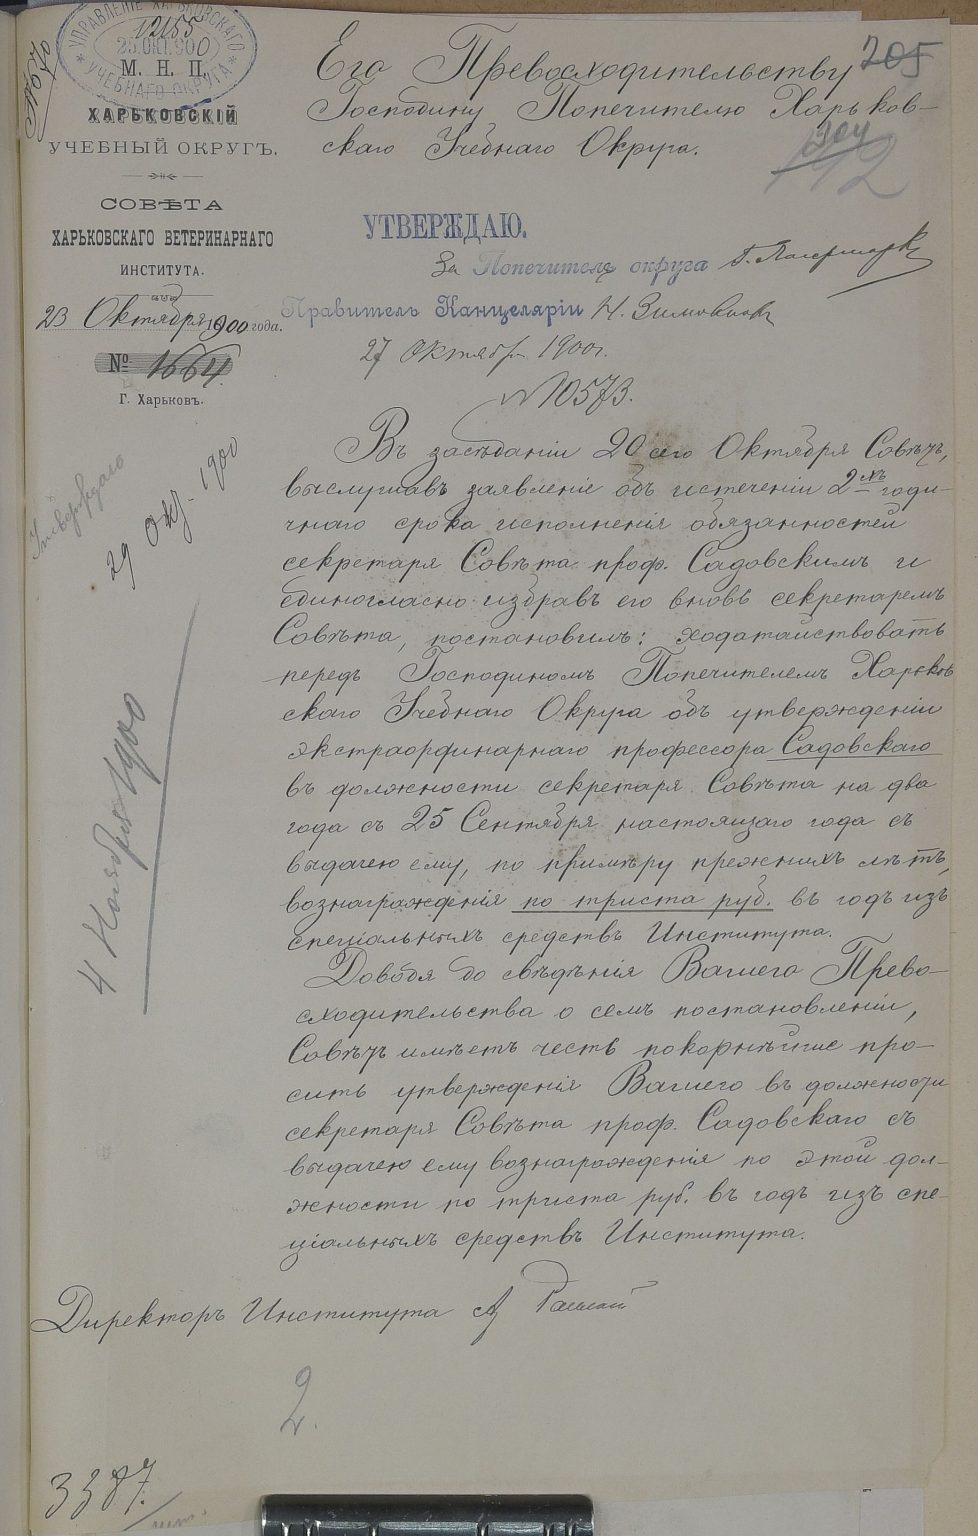 УПРАВЛЕНІЕ ХАРЬКОВСКАГО
УЧЕБНАГО ОКРУГА
12155
25.ОКТ.900
М. Н. П.
ХАРЬКОВСКІЙ
УЧЕБНЫЙ ОКРУГЪ.
СОВѢТА
ХАРЬКОВСКАГО ВЕТЕРИНАРНАГО
ИНСТИТУТА.
23 Октября 1900 года.
№ 1664.
Г. Харьковъ.
205
304
192
Его Превосходительству
Господину Попечителю Харьков-
скаго Учебнаго Округа.
УТВЕРЖДАЮ.
За Попечителя округа
Правитель Канцеляріи Н.
27 Октября 1900г.
№ 10573.
29 Окт. 1900
4 Ноября 1900
Въ засѣданіи 20 сего Октября Совѣтъ,
выслушавъ заявленіе объ истеченіи 2хъ годи-
чнаго срока исполненія обязанностей
секретаря Совѣта проф. Садовскимъ и
единогласно избравъ его вновь секретаремъ
Совѣта, постановилъ: ходатайствовать
передъ Господиномъ Попечителемъ Харьков
скаго Учебнаго Округа объ утвержденіи
экстраординарнаго профессора Садовскаго
въ должности секретаря Совѣта на два
года съ 25 Сентября настоящаго года съ
выдачею ему, по примѣру прежнихъ лѣтъ,
вознагражденія по триста руб. въ годъ изъ
спеціальныхъ средствъ Института.
Доводя до свѣдѣнія Вашего Прево-
сходительства о семъ постановленіи,
Совѣтъ имѣетъ честь покорнѣйше про-
сить утвержденія Вашего въ должности
секретаря Совѣта проф. Садовскаго съ
выдачею ему вознагражденія по этой дол-
жности по триста руб. въ годъ изъ спе-
ціальныхъ средствъ Института.
Директоръ Института
2.
3387.